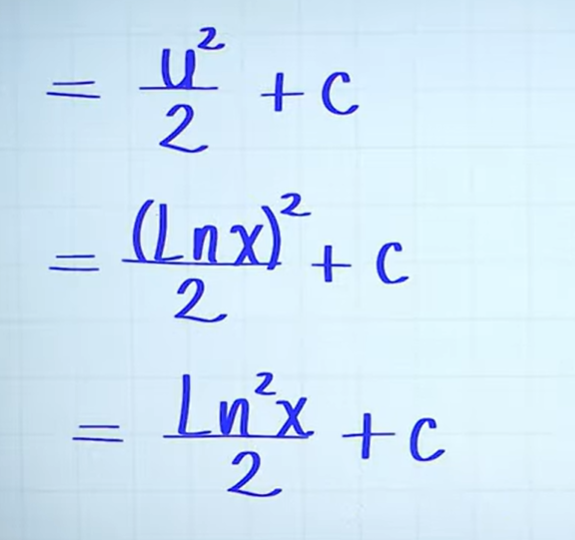 = u²/2 + c
= (Ln x)²/2 + c
= Ln²x/2 + c